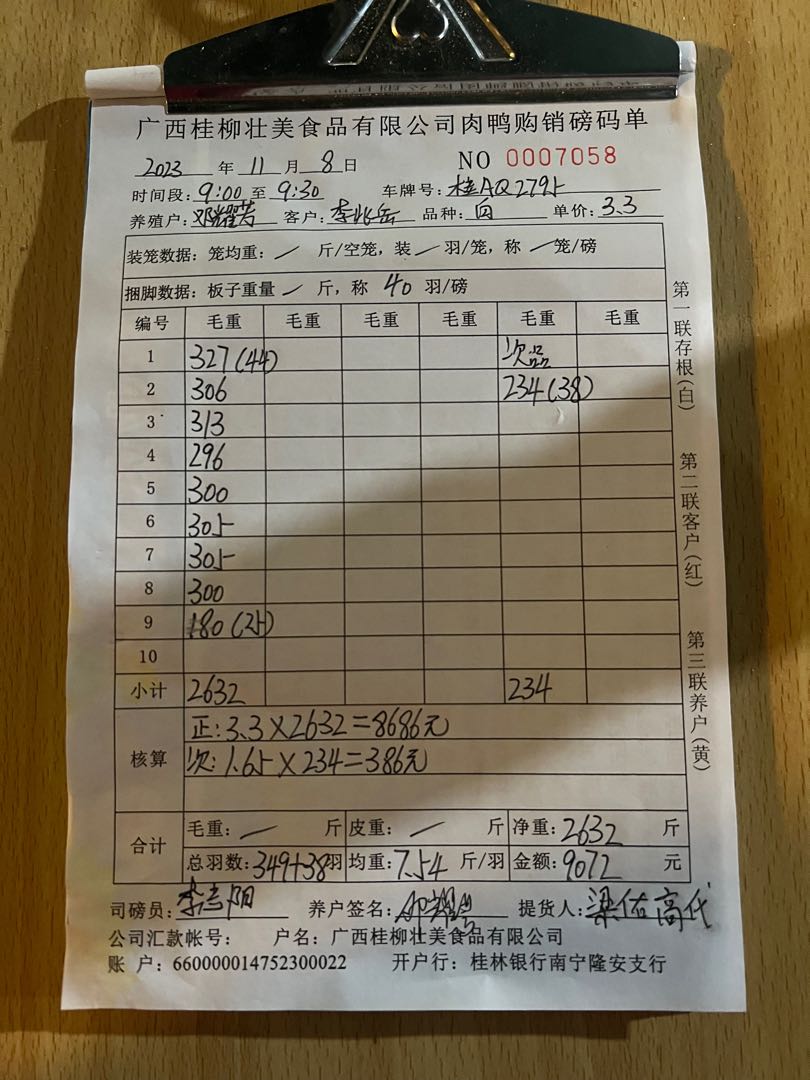 广西桂柳壮美食品有限公司肉鸭购销磅码单
2023 年 11 月 8 日 NO 0007058
时间段: 9:00 至 9:30 车牌号: 桂AQ2795
养殖户: 邓耀芳 客户: 李兆岳 品种: 白 单价: 3.3
装笼数据: 笼均重: / 斤/空笼, 装 / 羽/笼, 称 / 笼/磅
捆脚数据: 板子重量 / 斤, 称 40 羽/磅
编号 毛重 毛重 毛重 毛重 毛重 毛重
1 327(44) 次品
2 306 234(38)
3 313
4 296
5 300
6 305
7 305
8 300
9 180(25)
10
小计 2632 234
核算
正: 3.3×2632=8686元
次: 1.65×234=386元
合计
毛重: / 斤 皮重: / 斤 净重: 2632 斤
总羽数: 349+38羽 均重: 7.54 斤/羽 金额: 9072 元
司磅员: 李志阳 养户签名: 提货人: 梁佑高代
公司汇款帐号: 户名: 广西桂柳壮美食品有限公司
账 户: 660000014752300022 开户行: 桂林银行南宁隆安支行
第一联存根(白)
第二联客户(红)
第三联养户(黄)